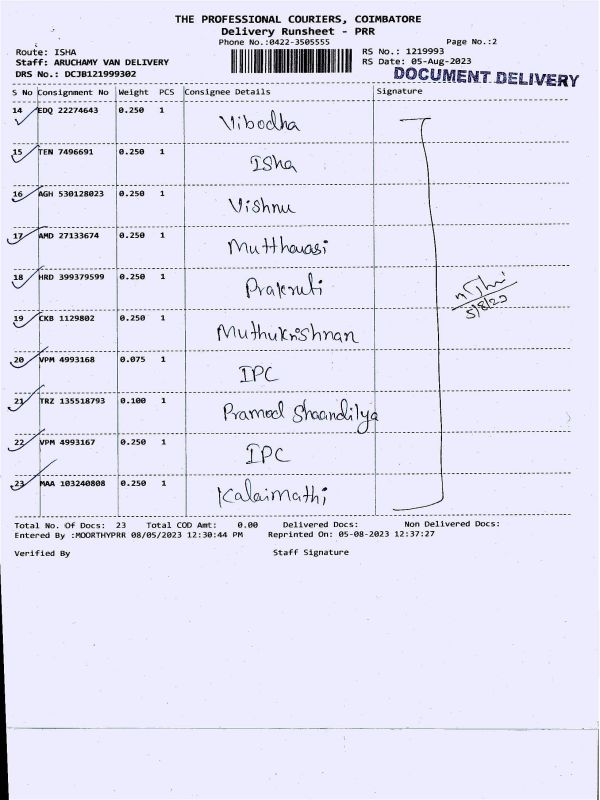 THE PROFESSIONAL COURIERS, COIMBATORE
Delivery Runsheet - PRR
Phone No.:0422-3505555
Page No.:2
Route: ISHA
RS No.: 1219993
Staff: ARUCHAMY VAN DELIVERY
RS Date: 05-Aug-2023
DRS No.: DCJB121999302
DOCUMENT DELIVERY
S No Consignment No Weight PCS Consignee Details Signature
14 EDQ 22274643 0.250 1 Vibodha
15 TEN 7496691 0.250 1 ISha
16 AGH 530128023 0.250 1 Vishnu
17 AMD 27133674 0.250 1
18 HRD 399379599 0.250 1
19 CKB 1129802 0.250 1 Muthukrishnan
20 VPM 4993168 0.075 1 IPC
21 TRZ 135518793 0.100 1 Pramod Shaandilya
22 VPM 4993167 0.250 1 IPC
23 MAA 103240808 0.250 1 Kalaimathi
5/8/23
Total No. Of Docs: 23 Total COD Amt: 0.00 Delivered Docs: Non Delivered Docs:
Entered By :MOORTHYPRR 08/05/2023 12:30:44 PM Reprinted On: 05-08-2023 12:37:27
Verified By Staff Signature